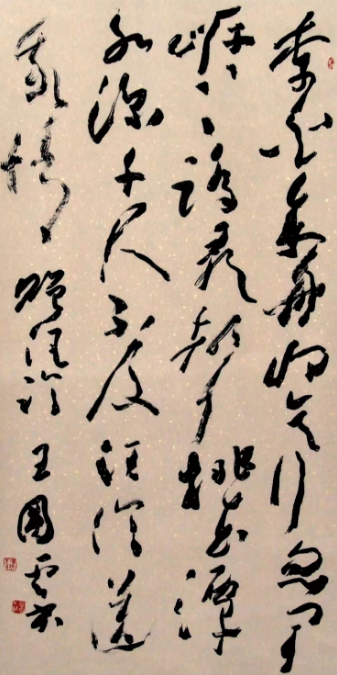 李白乘舟将欲行忽闻
岸上踏歌声桃花潭
水深千尺不及汪伦送
我情赠汪伦王國书